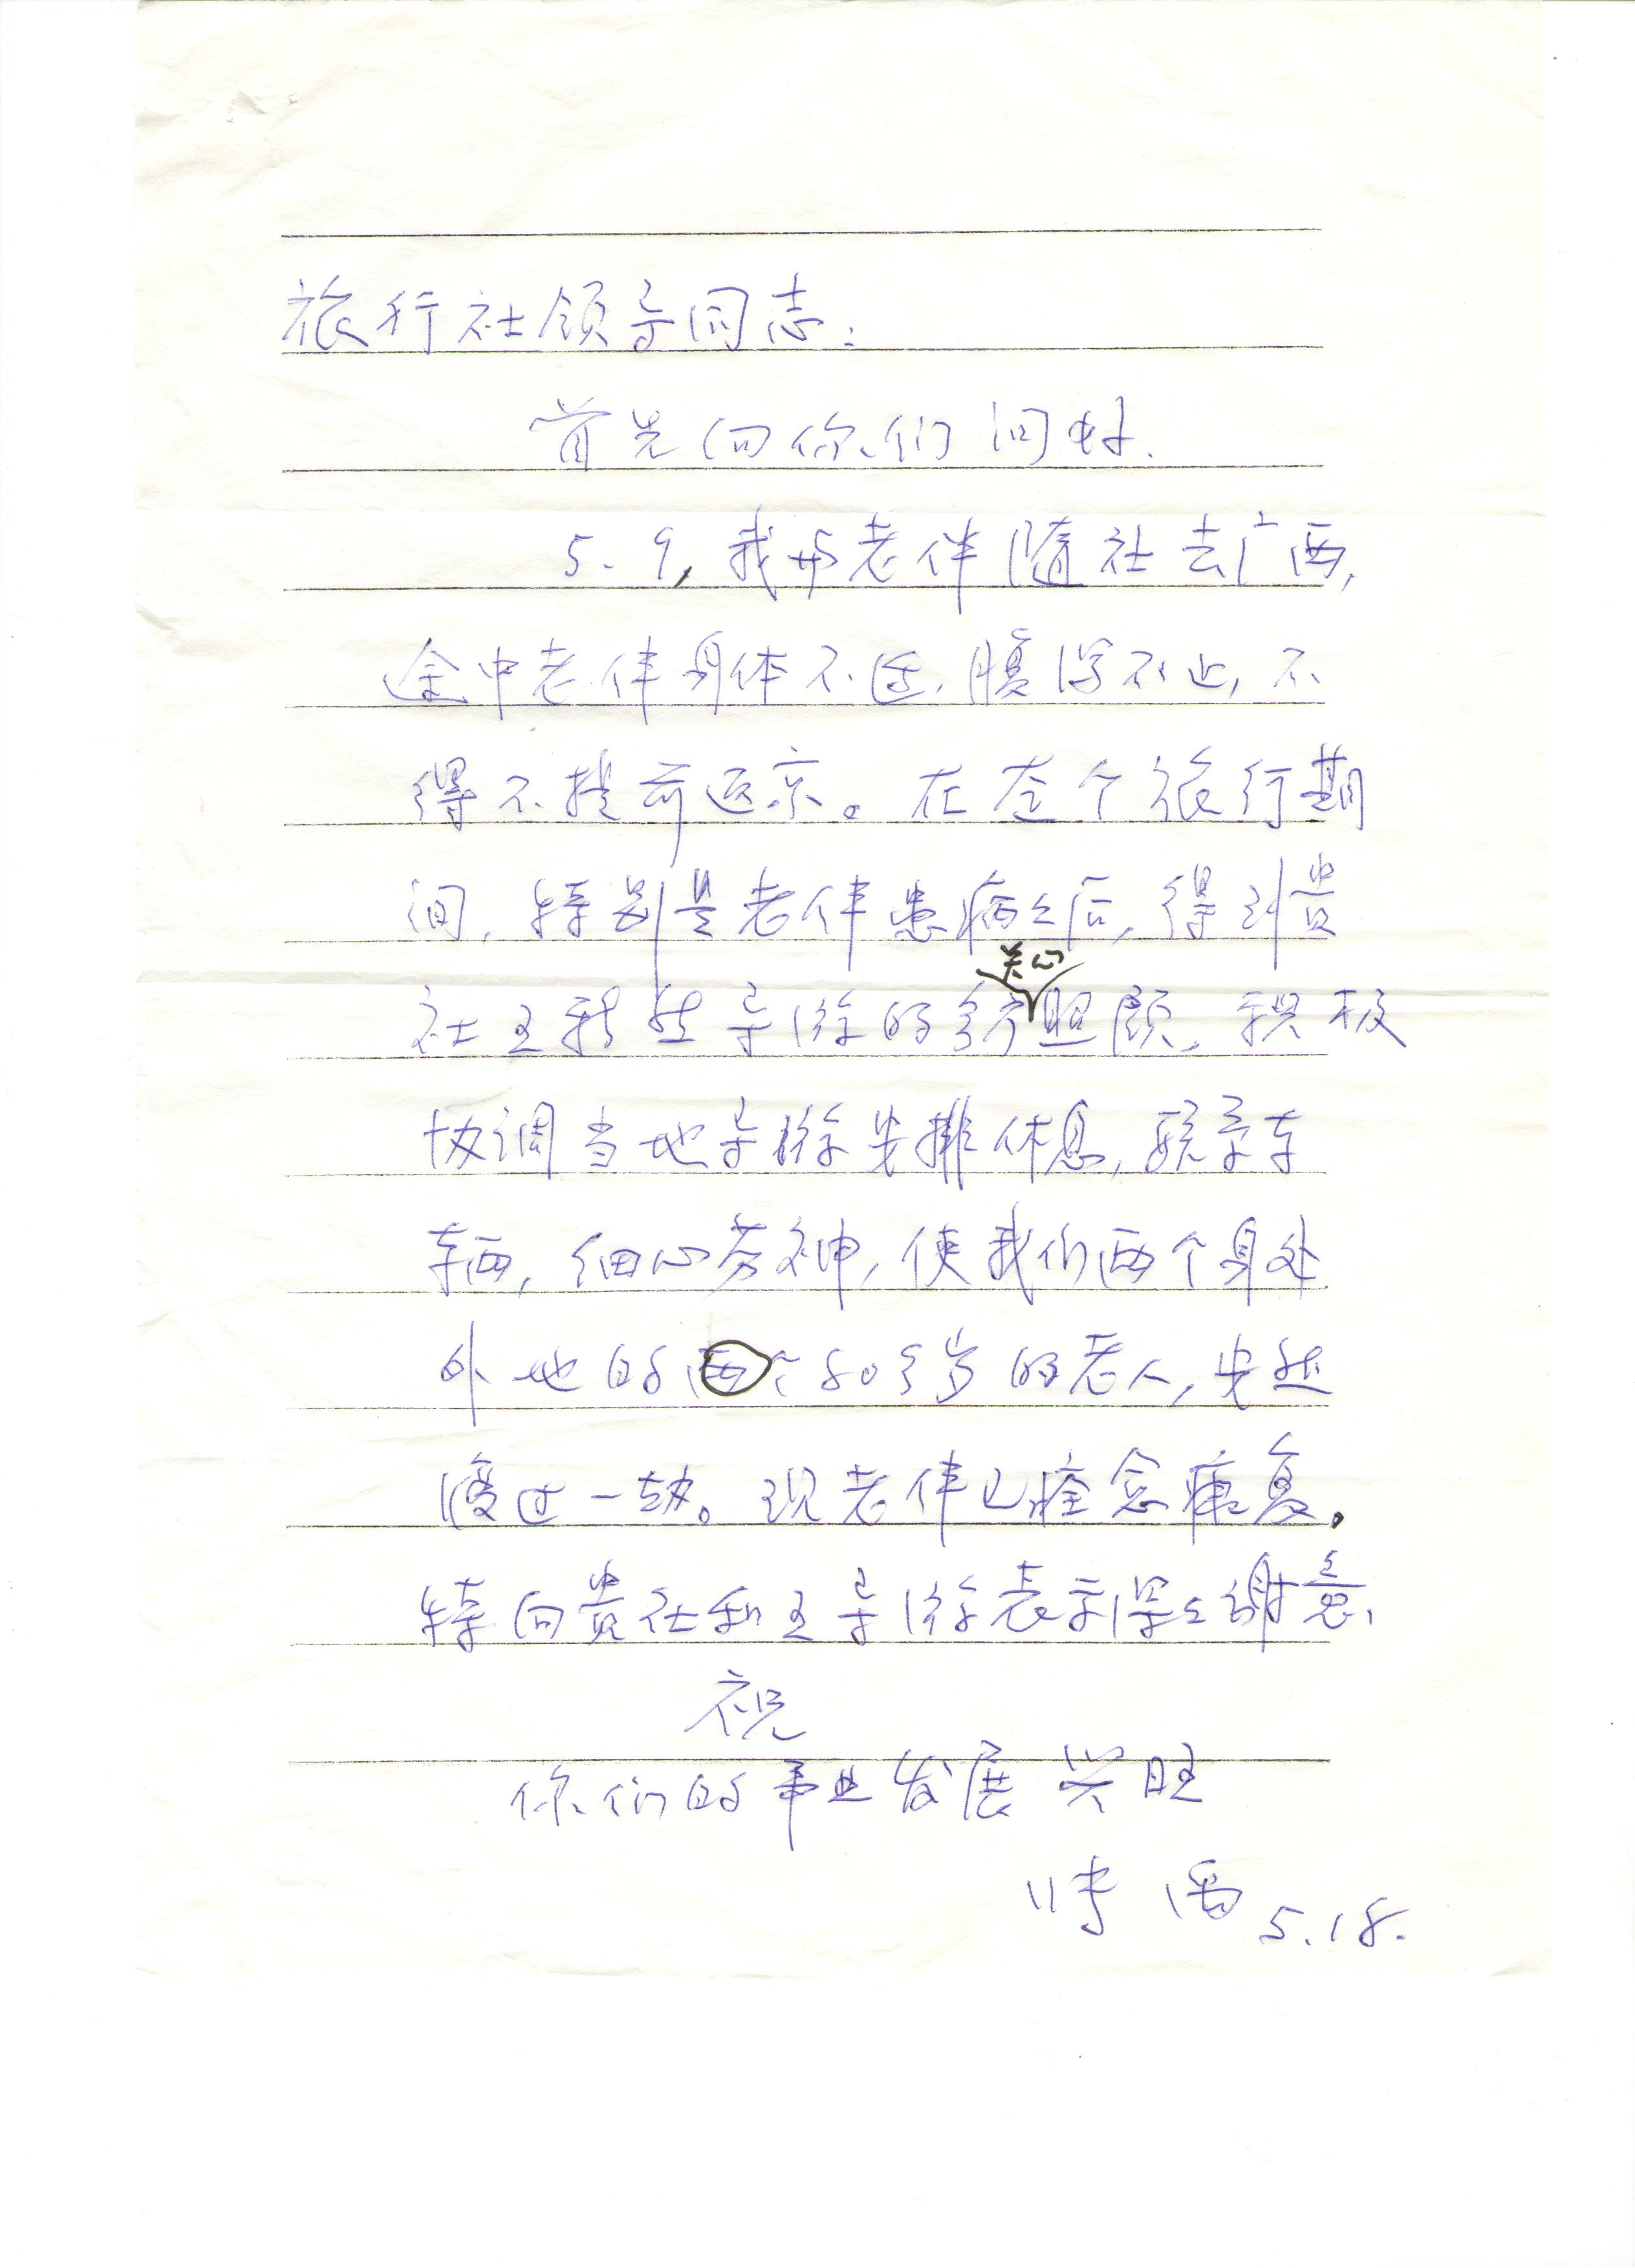 旅行社领导同志:
首先向你们问好.
5.9,我与老伴随社去广西,
途中老伴身体不适,腹泻不止,不
得不提前返京。在在个旅行期
间,特别是老伴患病之后,得到贵
社王 导游的 关心照顾,积极
协调当地导游安排休息,联系车
车辆,细心劳神,使我们两个身处
外地的两个80多岁的老人,安然
渡过一劫。现老伴已痊愈康复。
特向贵社和王导游表示深深谢意,
祝
你们的事业发展兴旺
时 5.18.